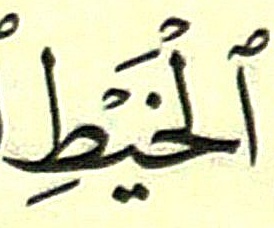 ٱلْخَيْطِ